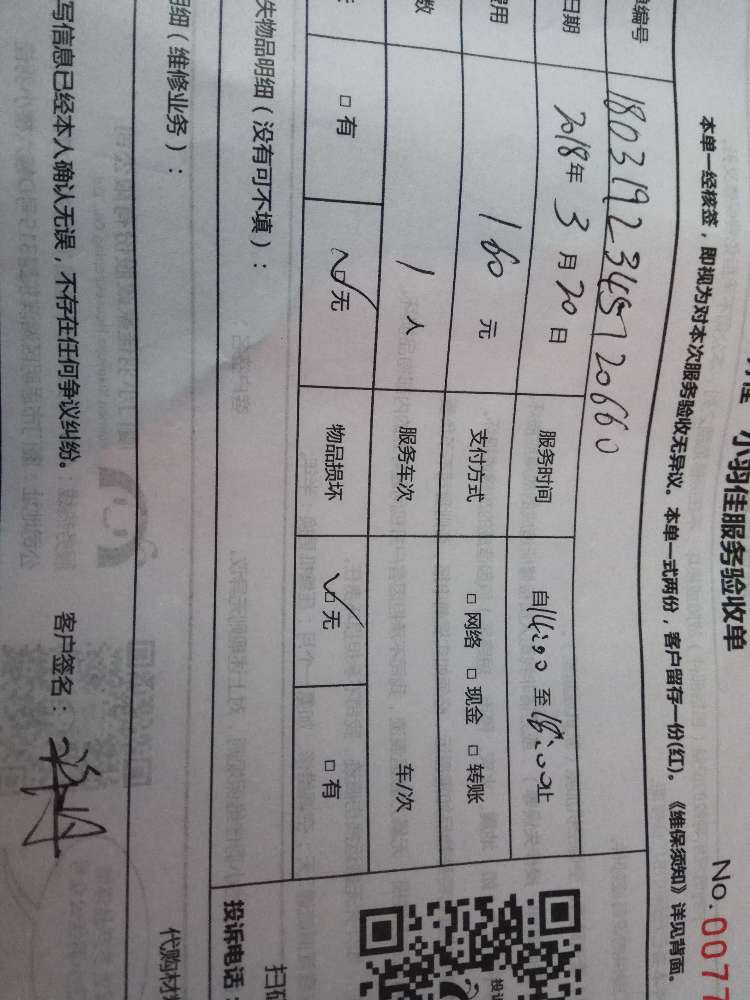 小羽佳服务验收单
No.0077
本单一经核签，即视为对本次服务验收无异议。本单一式两份，客户留存一份(红)。《维保须知》详见背面。
单编号 1803192345720660
日期 2018年3月20日 服务时间 自14:00至18:00止
费用 160元 支付方式 □网络 □现金 □转账
数 1人 服务车次 车/次
□有 ☑无 物品损坏 ☑无 □有
失物品明细（没有可不填）：
投诉电话：
明细（维修业务）：
扫码
代购材料
写信息已经本人确认无误，不存在任何争议纠纷。
客户签名：